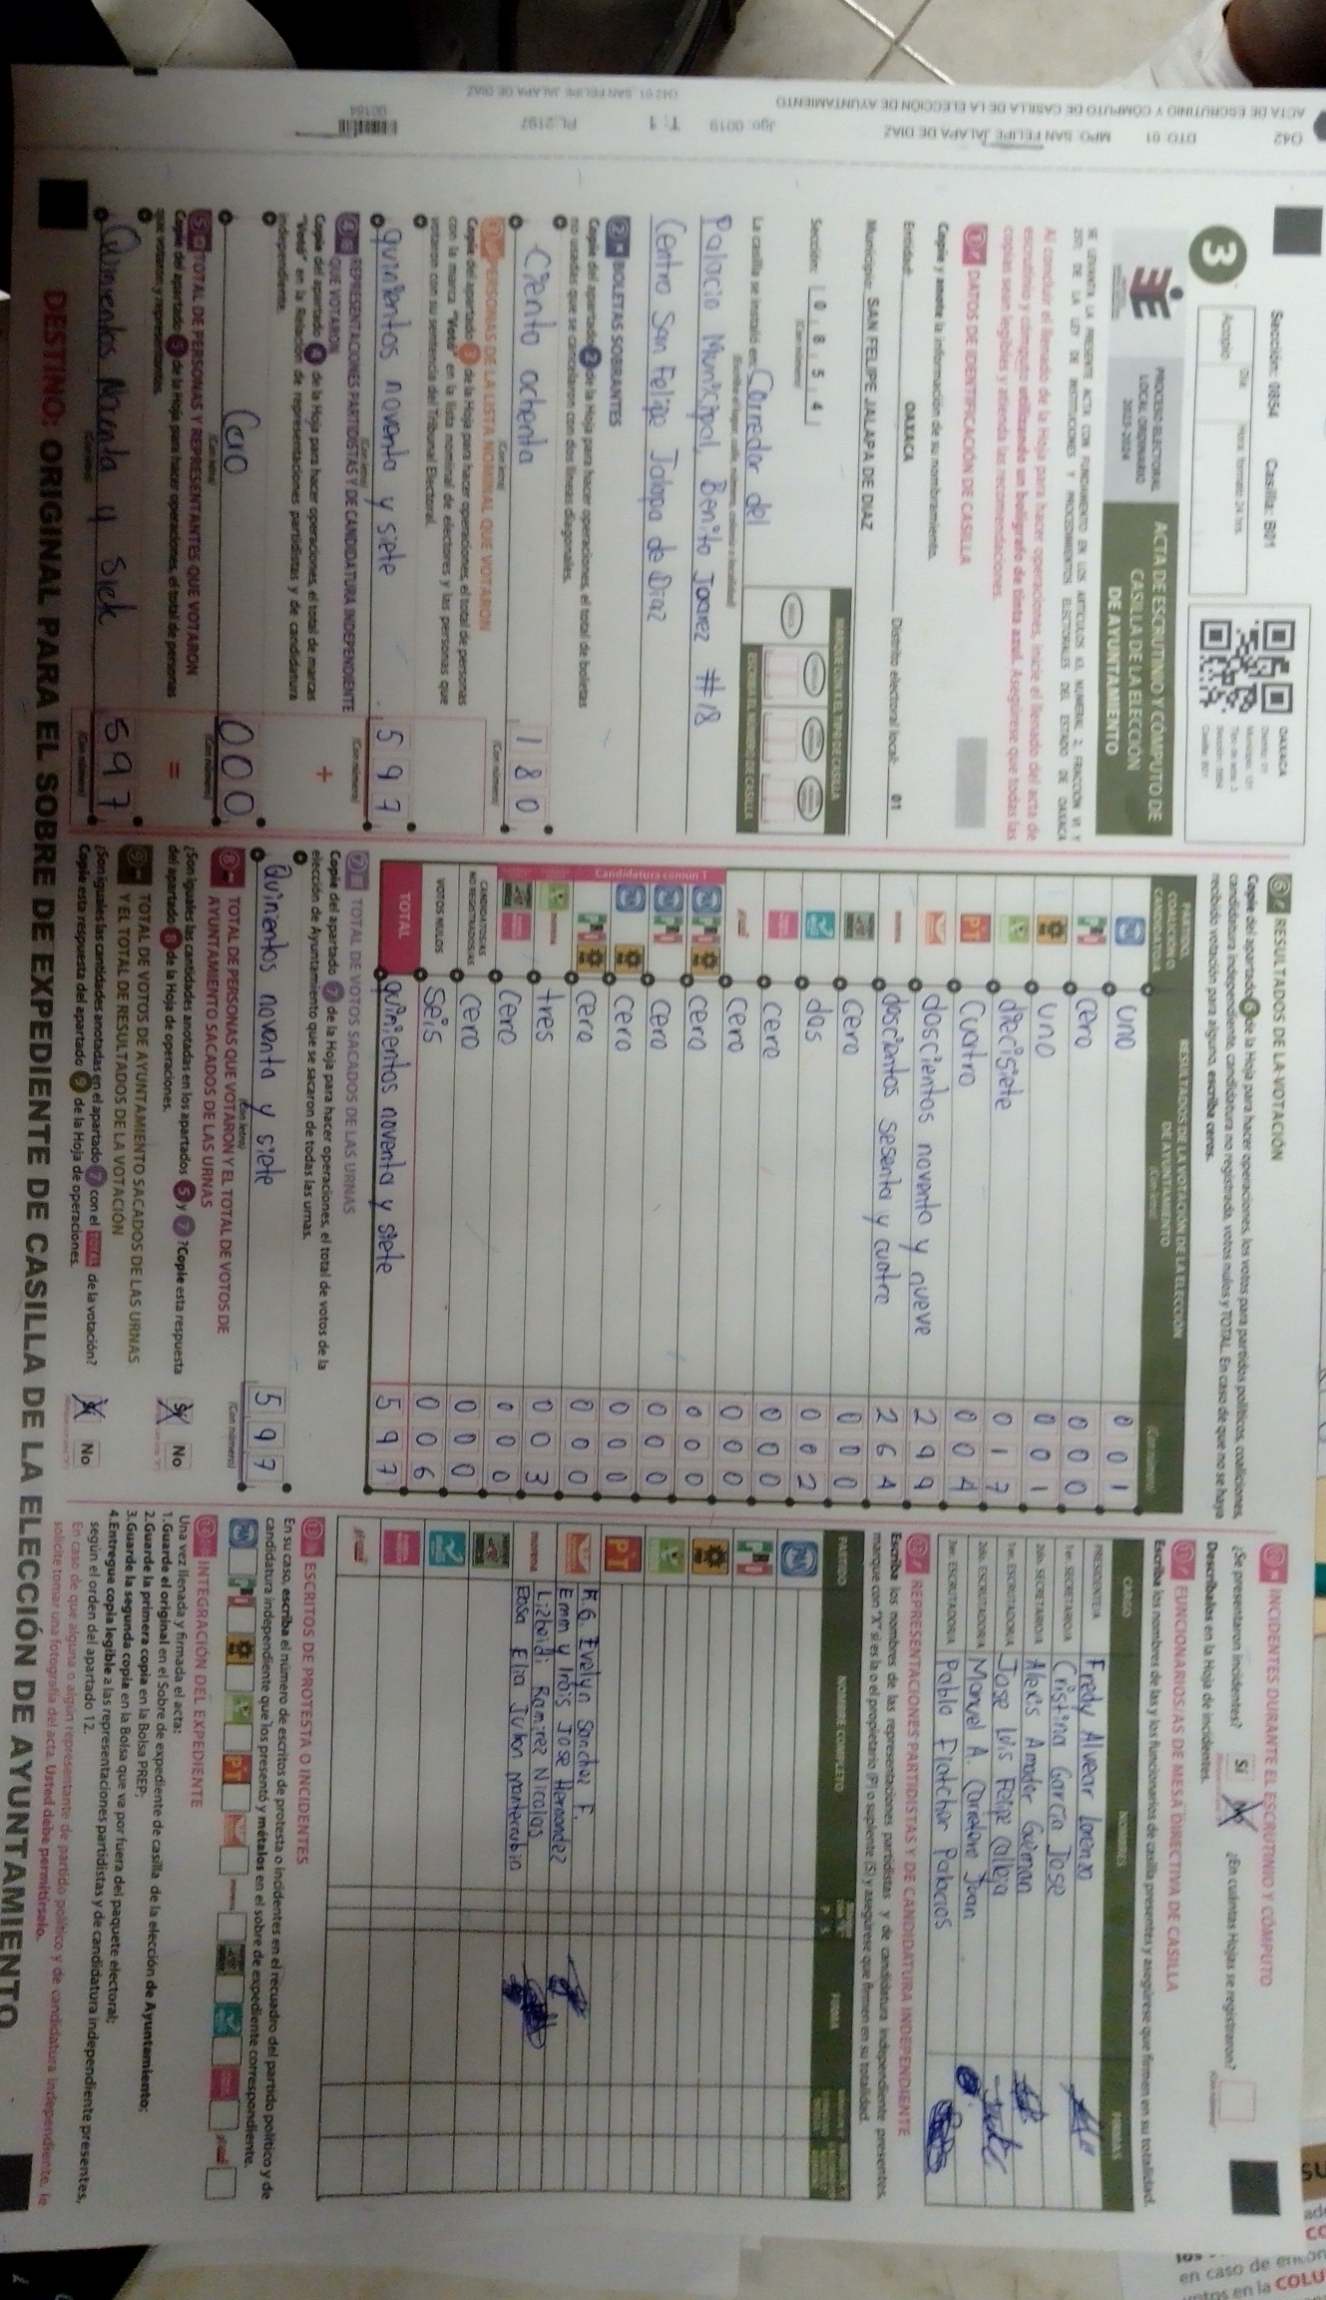 Sección: 0854 Casilla: B01
3
Acopio
Día
OAXACA
PROCESO ELECTORAL
LOCAL ORDINARIO
2023-2024
ACTA DE ESCRUTINIO Y CÓMPUTO DE
CASILLA DE LA ELECCIÓN
DE AYUNTAMIENTO
Al concluir el llenado de la Hoja para hacer operaciones, inicie el llenado del acta de
escrutinio y cómputo utilizando un bolígrafo de tinta azul. Asegúrese que todas las
copias sean legibles y atienda las recomendaciones.
1 DATOS DE IDENTIFICACIÓN DE CASILLA
Copie y anote la información de su nombramiento.
Entidad: OAXACA Distrito electoral local: 01
Municipio: SAN FELIPE JALAPA DE DIAZ
Sección: 0 8 5 4
(Con número)
MARQUE CON X EL TIPO DE CASILLA
ESCRIBA EL NÚMERO DE CASILLA
La casilla se instaló en: Corredor del
Palacio Municipal, Benito Juarez #18
Centro San Felipe Jalapa de Diaz
2 BOLETAS SOBRANTES
Copie del apartado 2 de la Hoja para hacer operaciones, el total de boletas
no usadas que se cancelaron con dos líneas diagonales.
Ciento ochenta 1 8 0
(Con letra) (Con número)
3 PERSONAS DE LA LISTA NOMINAL QUE VOTARON
Copie del apartado 3 de la Hoja para hacer operaciones, el total de personas
con la marca "Votó" en la lista nominal de electores y las personas que
votaron con su sentencia del Tribunal Electoral.
quinientos noventa y siete 5 9 7
(Con letra) (Con número)
4 REPRESENTACIONES PARTIDISTAS Y DE CANDIDATURA INDEPENDIENTE
QUE VOTARON
Copie del apartado 4 de la Hoja para hacer operaciones, el total de marcas +
"Votó" en la Relación de representaciones partidistas y de candidatura
independiente.
Cero 0 0 0
(Con letra) (Con número)
5 TOTAL DE PERSONAS Y REPRESENTANTES QUE VOTARON
Copie del apartado 5 de la Hoja para hacer operaciones, el total de personas =
que votaron y representantes.
5 9 7
(Con letra) (Con número)
6 RESULTADOS DE LA VOTACIÓN
Copie del apartado 6 de la Hoja para hacer operaciones, los votos para partidos políticos, coaliciones,
candidatura independiente, candidatura no registrada, votos nulos y TOTAL. En caso de que no se haya
recibido votación para alguno, escriba ceros.
PARTIDO,
COALICIÓN O
CANDIDATURA
RESULTADOS DE LA VOTACIÓN DE LA ELECCIÓN
DE AYUNTAMIENTO
(Con letra) (Con número)
uno 0 0 1
Cero 0 0 0
uno 0 0 1
diecisiete 0 1 7
PT Cuatro 0 0 4
doscientos noventa y nueve 2 9 9
doscientos sesenta y cuatro 2 6 4
Cero 0 0 0
dos 0 0 2
cero 0 0 0
Cero 0 0 0
Candidatura común 1
cero 0 0 0
Cero 0 0 0
cero 0 0 0
Cero 0 0 0
tres 0 0 3
Cero 0 0 0
CANDIDATOS/AS
NO REGISTRADOS/AS
Cero 0 0 0
VOTOS NULOS Seis 0 0 6
TOTAL quinientos noventa y siete 5 9 7
7 TOTAL DE VOTOS SACADOS DE LAS URNAS
Copie del apartado 7 de la Hoja para hacer operaciones, el total de votos de la
elección de Ayuntamiento que se sacaron de todas las urnas.
Quinientos noventa y siete 5 9 7
(Con letra) (Con número)
8 TOTAL DE PERSONAS QUE VOTARON Y EL TOTAL DE VOTOS DE
AYUNTAMIENTO SACADOS DE LAS URNAS
¿Son iguales las cantidades anotadas en los apartados 5 y 7? Copie esta respuesta
del apartado 8 de la Hoja de operaciones. Sí No
9 TOTAL DE VOTOS DE AYUNTAMIENTO SACADOS DE LAS URNAS
Y EL TOTAL DE RESULTADOS DE LA VOTACIÓN
¿Son iguales las cantidades anotadas en el apartado 7 con el TOTAL de la votación?
Copie esta respuesta del apartado 9 de la Hoja de operaciones. Sí No
10 INCIDENTES DURANTE EL ESCRUTINIO Y CÓMPUTO
¿Se presentaron incidentes? Sí No ¿En cuántas Hojas se registraron?
Descríbalos en la Hoja de incidentes.
11 FUNCIONARIOS/AS DE MESA DIRECTIVA DE CASILLA
Escriba los nombres de las y los funcionarios de casilla presentes y asegúrese que firmen en su totalidad.
CARGO NOMBRES FIRMAS
PRESIDENTE/A Fredy Alvear Lorenzo
1er. SECRETARIO/A Cristina García Jose
2do. SECRETARIO/A Alexis Amador Guzman
1er. ESCRUTADOR/A Jose Luis Felipe Calleja
2do. ESCRUTADOR/A Manuel A. Juan
3er. ESCRUTADOR/A Pablo Flatcher Palacios
12 REPRESENTACIONES PARTIDISTAS Y DE CANDIDATURA INDEPENDIENTE
Escriba los nombres de las representaciones partidistas y de candidatura independiente presentes,
marque con "X" si es la o el propietario (P) o suplente (S) y asegúrese que firmen en su totalidad.
PARTIDO NOMBRE COMPLETO P S FIRMA
PT
Evelyn Sanchez F.
Emm y Irbis Jose Hernandez
morena Lizbeidi Ramirez Nicolas
Rosa Elia
13 ESCRITOS DE PROTESTA O INCIDENTES
En su caso, escriba el número de escritos de protesta o incidentes en el recuadro del partido político y de
candidatura independiente que los presentó y métalos en el sobre de expediente correspondiente.
PT
14 INTEGRACIÓN DEL EXPEDIENTE
Una vez llenada y firmada el acta:
1.Guarde el original en el Sobre de expediente de casilla de la elección de Ayuntamiento;
2.Guarde la primera copia en la Bolsa PREP;
3.Guarde la segunda copia en la Bolsa que va por fuera del paquete electoral;
4.Entregue copia legible a las representaciones partidistas y de candidatura independiente presentes,
según el orden del apartado 12.
En caso de que alguna o algún representante de partido político y de candidatura independiente, le
solicite tomar una fotografía del acta. Usted debe permitírselo.
DESTINO: ORIGINAL PARA EL SOBRE DE EXPEDIENTE DE CASILLA DE LA ELECCIÓN DE AYUNTAMIENTO
042 DTO 01 MPO SAN FELIPE JALAPA DE DIAZ
ACTA DE ESCRUTINIO Y CÓMPUTO DE CASILLA DE LA ELECCIÓN DE AYUNTAMIENTO
Jgo: 0019 T: 1 PL: 2197
042 01 SAN FELIPE JALAPA DE DIAZ
en caso de
en la COLU